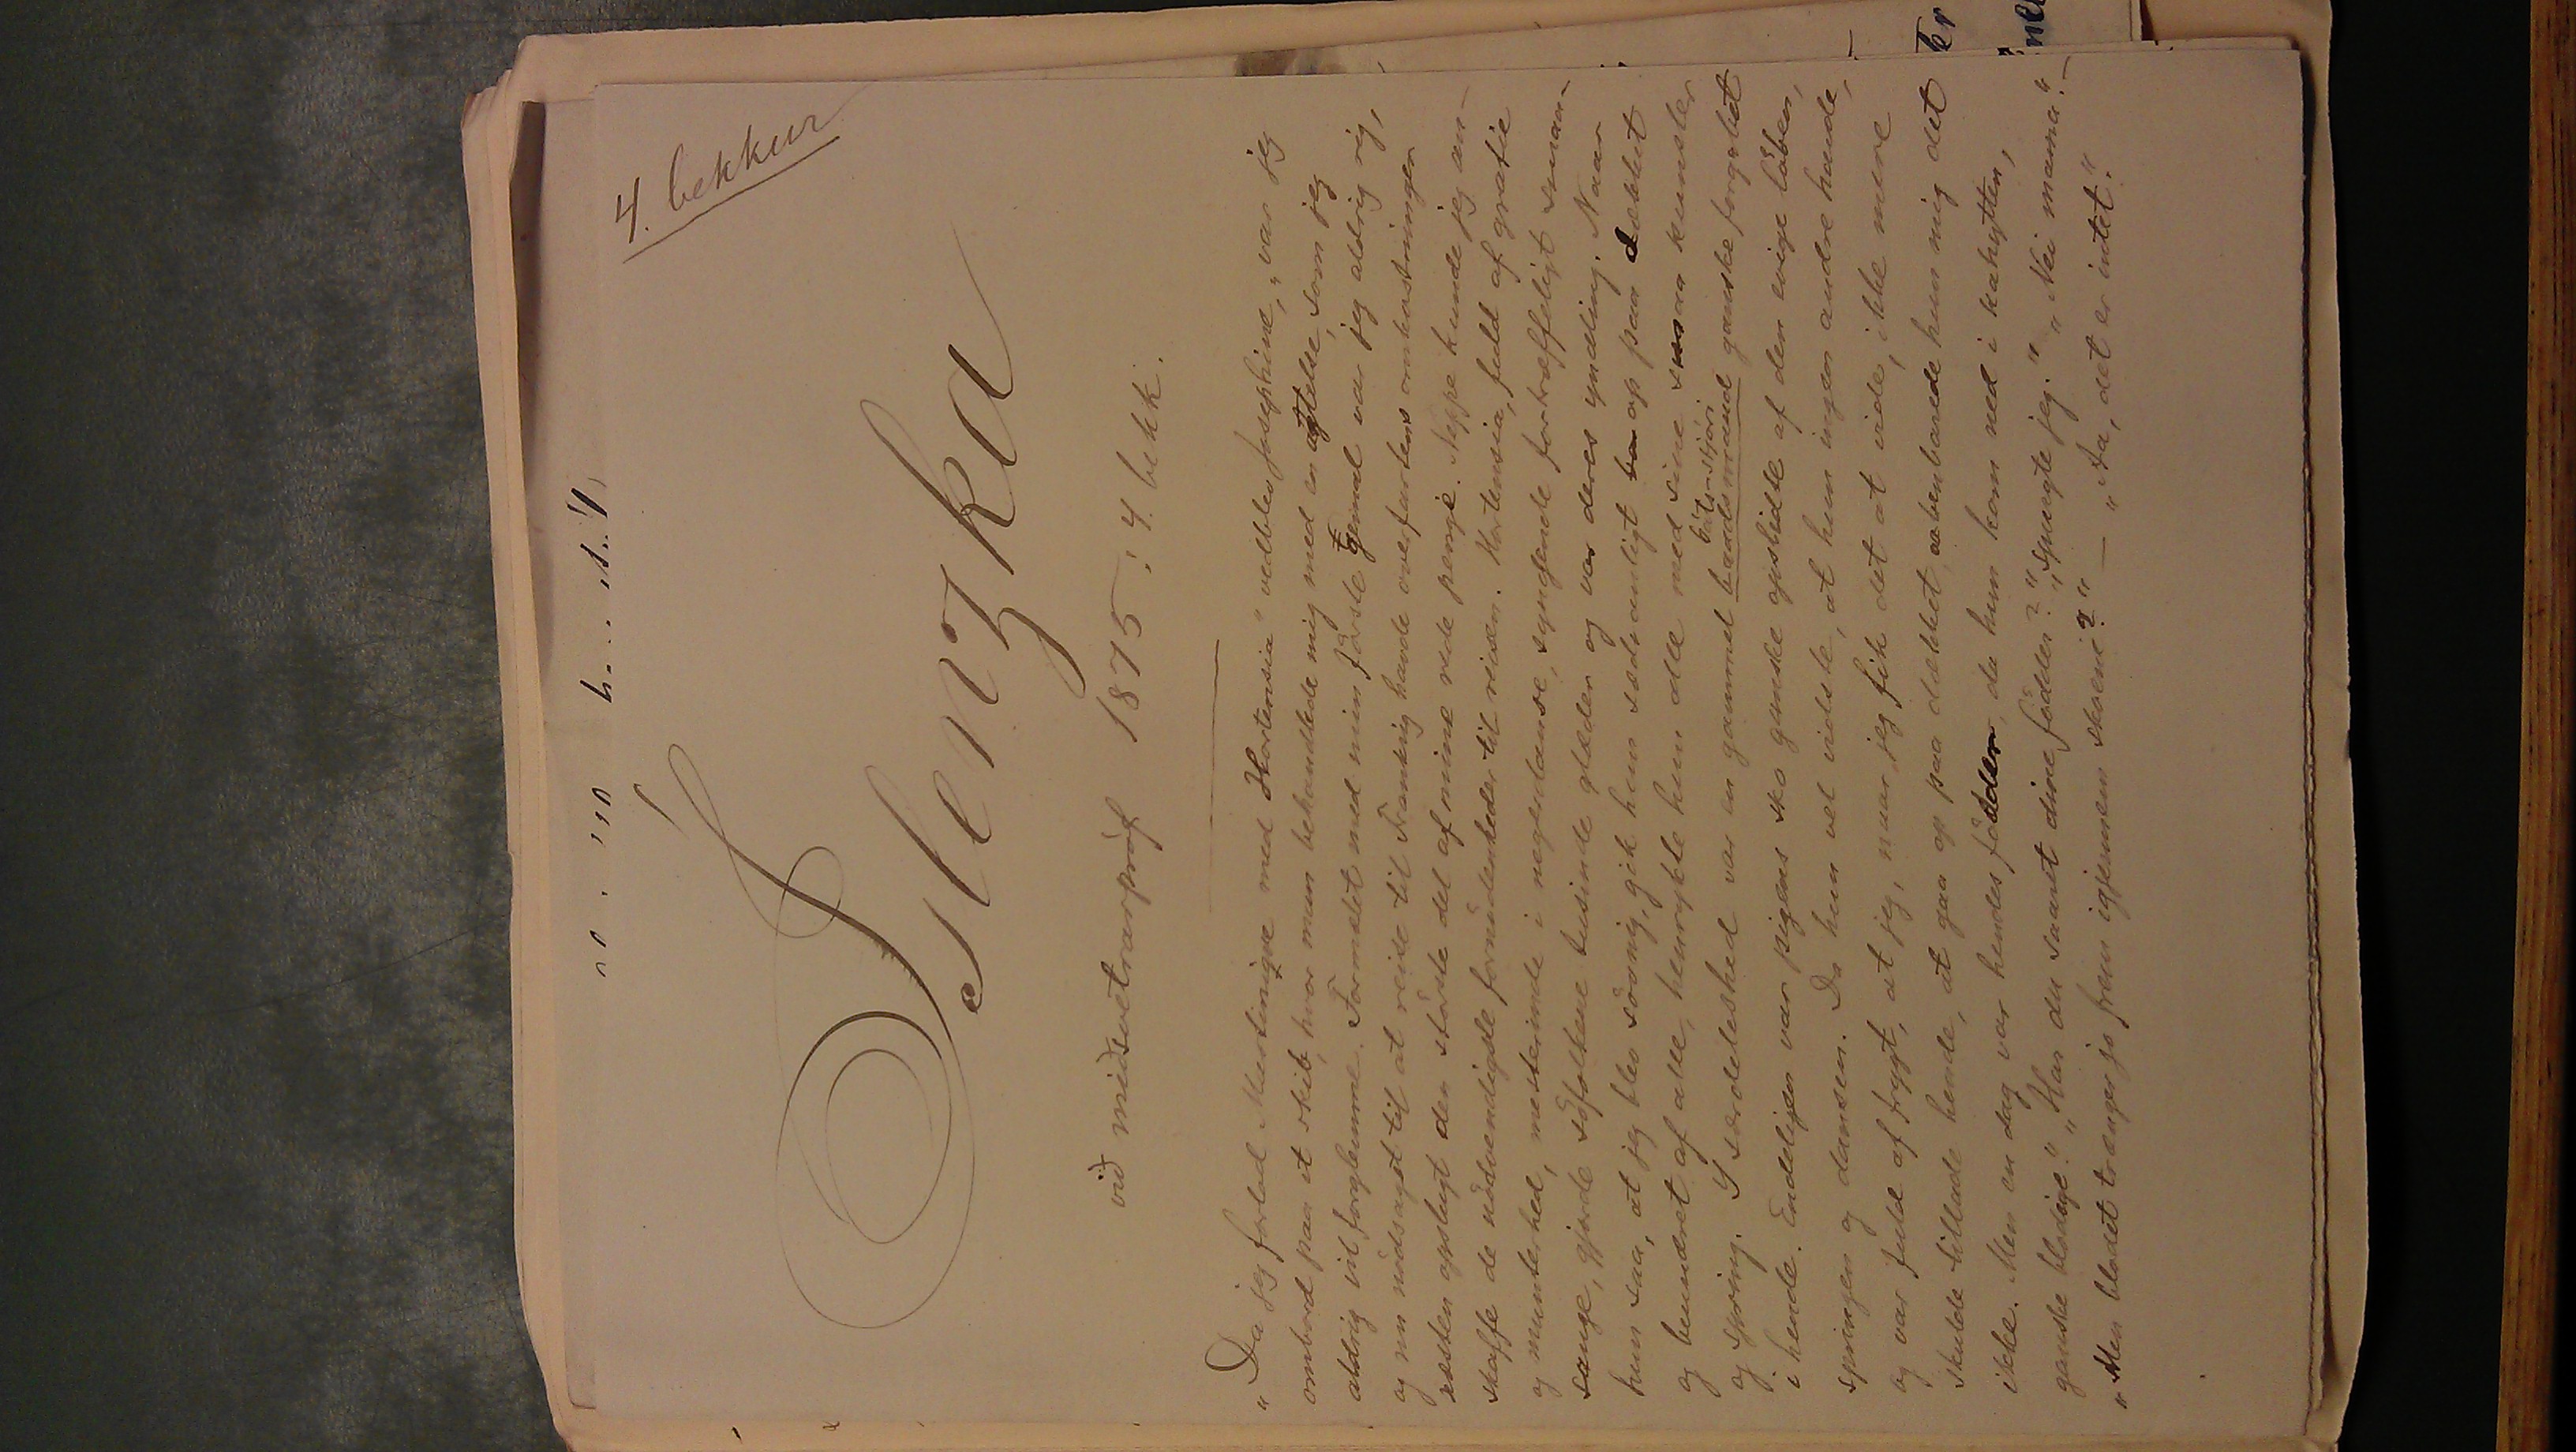 4. bekkur
Íslenzka
við miðsvetrarpróf 1875 i 4. bekk.
„Da jeg forlod Martinique med Hortensia" vedblev Josephine, „var jeg
ombord paa et skib, hvor man behandlede mig med en agtelse, som jeg
aldrig vil forglemme. Formælet med min förste gemal var jeg aldrig rig,
og nu nödsaget til at reise til Frankrig havde overfartens omkostninger
næsten opslugt den störste del af mine rede penge. Neppe kunde jeg an-
skaffe de nödvendigste fornödenheder til reisen. Hortensia, fuld af gratie
og munterhed, mesterinde i negerdanse, syngende fortræffeligt smaa-
sange, gjorde söfolkene tusinde glæder og var deres yndling. Naar
hun saa, at jeg blev sövnig, gik hun sædvanligt op paa dækket
og beundret af alle, henrykte hun alle med sine smaa kunster
bátsstjóri
og spring. I særdeleshed var en gammel baadsmand ganske forgabet
i hende. Endeligen var pigens sko ganske opslidte af den evige löben,
springen og dansen. Da hun vel vidste, at hun ingen andre havde,
og var fuld af frygt, at jeg, naar jeg fik det at vide, ikke mere
skulde tillade hende, at gaa op paa dækket, aabenbarede hun mig det
ikke. Men en dag var hendes födder, da hun kom ned i kahytten,
ganske blodige. „Har du saaret dine födder?" „spurgte jeg." „Nei mama." –
„Men blodet trænger jo frem igjennem skoene?" — „Aa, det er intet."